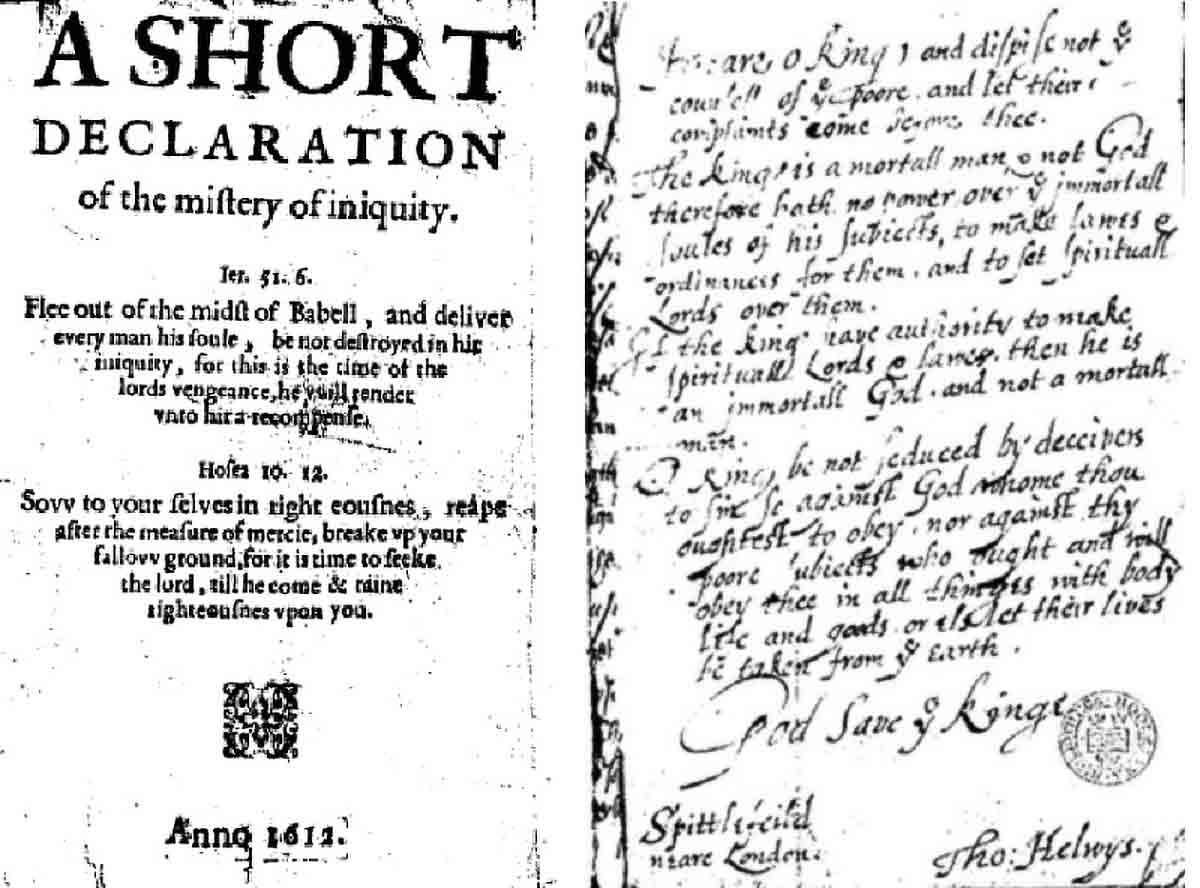 A SHORT
DECLARATION
of the miſtery of iniquity.
Ier. 51. 6.
Flee out of the midſt of Babell, and deliver
every man his ſoule, be not deſtroyed in hir
iniquity, for this is the time of the
lords vengeance, he vvill render
vnto hir a recompenſe.
Hoſea 10. 12.
Sovv to your ſelves in right eouſnes, reape
after the meaſure of mercie, breake vp your
fallovv ground, for it is time to ſeeke
the lord, till he come & raine
righteouſnes vpon you.
Anno 1612.
o king, and diſpiſe not yͤ
of yͤ poore, and let their
complaints come before thee.
The king is a mortall man & not God
therefore hath no power over yͤ jmmortall
ſoules of his ſubiects, to make lawes &
ordinances for them, and to ſet ſpirituall
Lords over them.
If the king have authority to make
ſpirituall Lords & lawes, then he is
an jmmortall God, and not a mortall
man.
O king, be not ſeduced by deceivers
to ſin ſo againſt God whome thou
oughteſt to obey, nor againſt thy
poore ſubiects who ought and will
obey thee in all thinges with body
life and goods, or els let their lives
be taken from yͤ earth.
God ſave yͤ kinge
Spittlefeild
neare London.
Tho: Helwys.